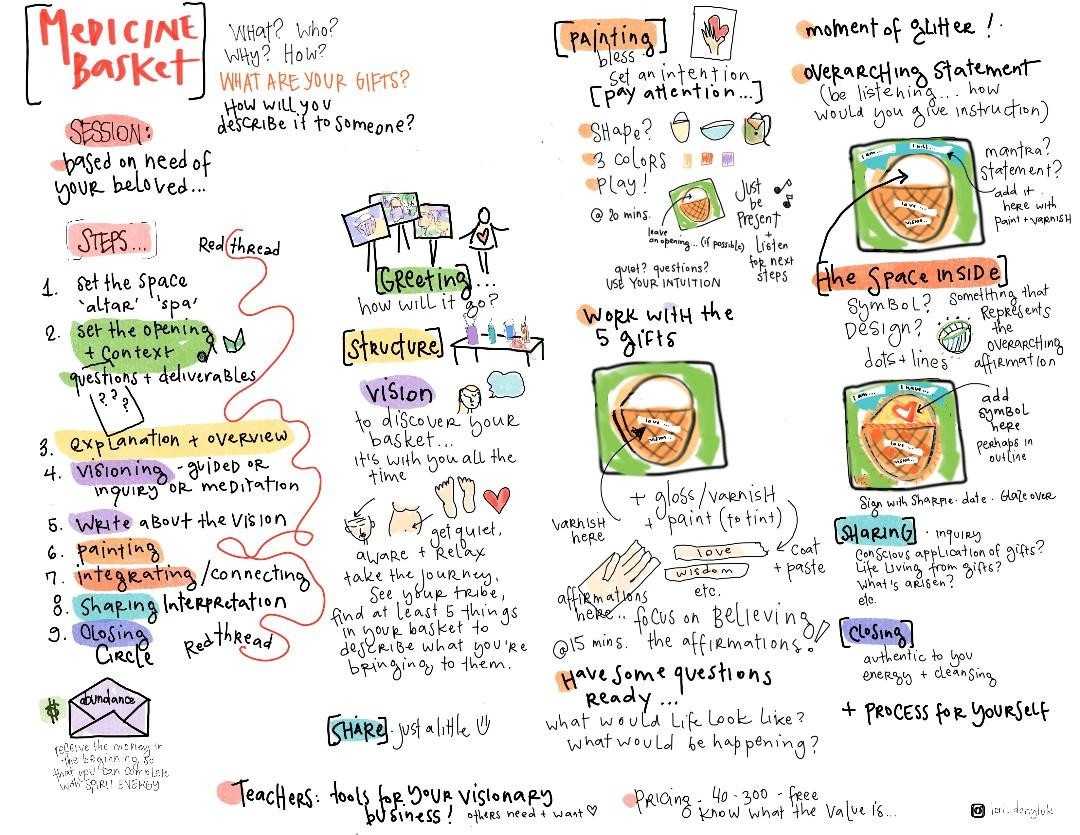 MEDICINE
BASKET
What? Who?
Why? How?
WHAT ARE YOUR GIFTS?
How will you
describe it to someone?
SESSION:
based on need of
your beloved...
STEPS...
Red thread
1. set the space
'altar' 'spa'
2. set the opening
+ Context
questions + deliverables
? ? ?
3. explanation + overview
4. visioning - guided or
inquiry or meditation
5. Write about the vision
6. painting
7. integrating/connecting
8 Sharing Interpretation
9. Closing
Circle
Red thread
$
abundance
receive the money in
the beginning, so
that you can complete
with SPIRIT ENERGY
Greeting...
how will it go?
STRUCTURE
VISION
to discover your
basket...
it's with you all the
time
get quiet,
aware + Relax
take the journey,
See your tribe,
find at least 5 things
in your basket to
describe what you're
bringing to them.
SHARE - just a little
PAINTING
bless
set an intention
[pay attention...]
SHAPE?
3 COLORS
PLAY!
@ 20 mins.
leave
an opening... (if possible)
Just
be
Present
+
Listen
for next
steps
quiet? questions?
USE YOUR INTUITION
Work with the
5 gifts
love...
vision...
+ gloss/varnish
+ paint (to tint)
varnish
here
love
wisdom
etc.
coat
+ paste
affirmations
here..
@15 mins.
focus on Believing
the affirmations!
Have some questions
ready...
what would life look like?
what would be happening?
moment of glitter!
overarching statement
(be listening... how
would you give instruction)
I am... I will...
love...
vision...
mantra?
statement?
add it
here with
paint + varnish
the Space Inside
Symbol?
Design?
dots + lines
something that
Represents
the
overarching
affirmation
I am... I have...
love...
vision...
add
symbol
here
perhaps in
outline
Sign with Sharpie · date · Glaze over
SHARING · inquiry
conscious application of gifts?
Life Living from gifts?
what's arisen?
etc.
CLOSING
authentic to you
energy + cleansing
+ PROCESS FOR YOURSELF
Teachers: tools for your visionary
business! others need + want ♡
Pricing - 40 - 300 - free
know what the value is...